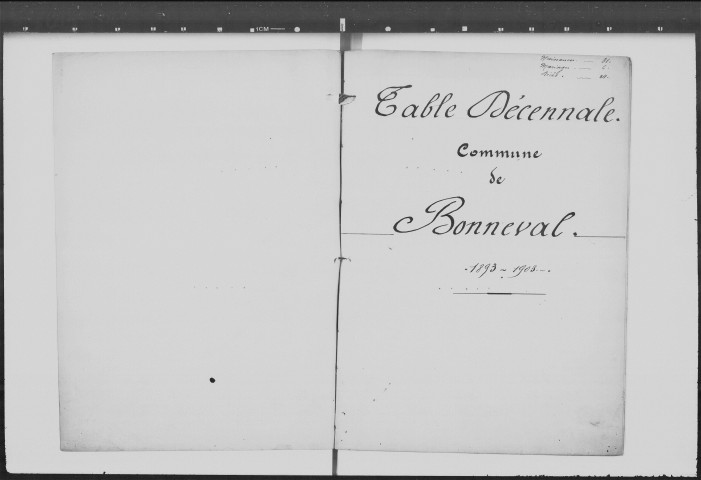 Naissances
Mariages
Décès
Table Décennale.
Commune
de
Bonneval.
1893 - 1903
1CM